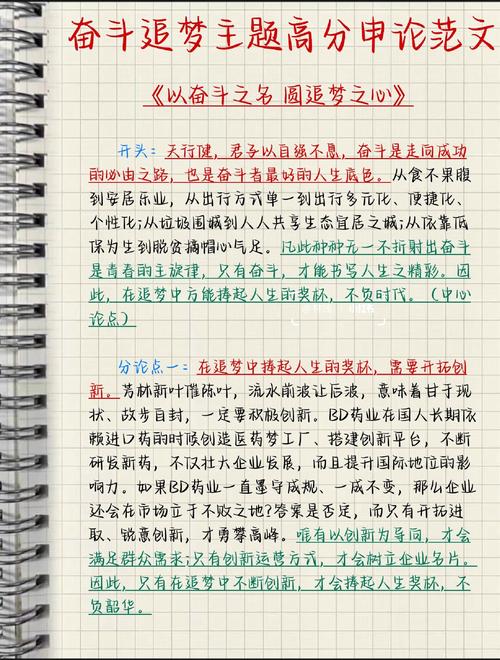 奋斗追梦主题高分申论范文
《以奋斗之名 圆追梦之心》
开头：天行健，君子以自强不息，奋斗是走向成功
的必由之路，也是奋斗者最好的人生底色。从食不果腹
到安居乐业，从出行方式单一到出行多元化、便捷化、
个性化；从垃圾围城到人人共享生态宜居之城；从依靠低
保为生到脱贫摘帽心气足。凡此种种无一不折射出奋斗
是青春的主旋律，只有奋斗，才能书写人生之精彩。因
此，在追梦中方能捧起人生的奖杯，不负时代。（中心
论点）
分论点一：在追梦中捧起人生的奖杯，需要开拓创
新。芳林新叶催陈叶，流水前波让后波，意味着甘于现
状、故步自封，一定要积极创新。BD药业在国人长期依
赖进口药的时候创造医药梦工厂、搭建创新平台，不断
研发新药，不仅壮大企业发展，而且提升国际地位的影
响力。如果BD药业一直墨守成规、一成不变，那么企业
还会在市场立于不败之地？答案是否定，而只有开拓进
取、锐意创新，才勇攀高峰。唯有以创新为导向，才会
满足群众需求；只有创新运营方式，才会树立企业名片。
因此，只有在追梦中不断创新，才会捧起人生奖杯，不
负韶华。